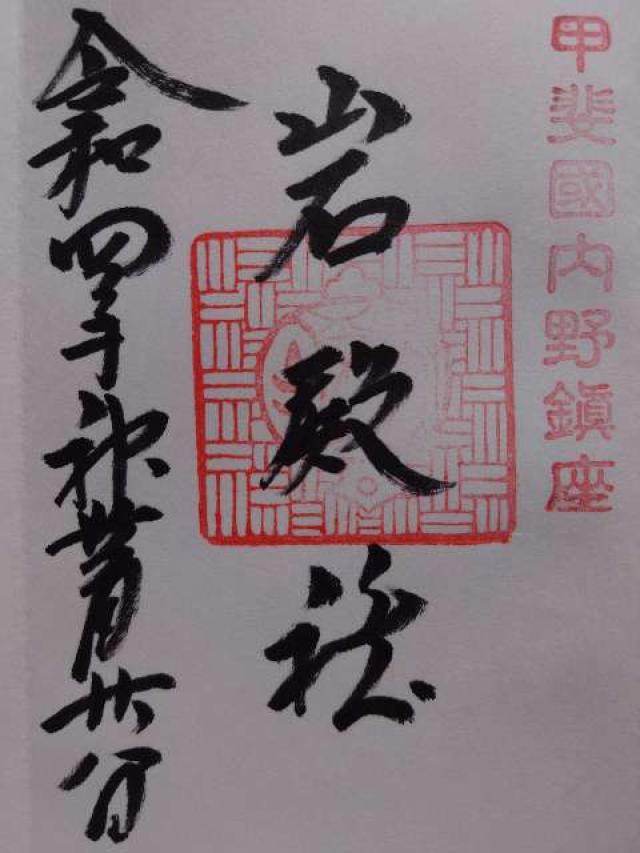 甲斐國内野鎮座
岩殿社
令和四年神無月廿六日